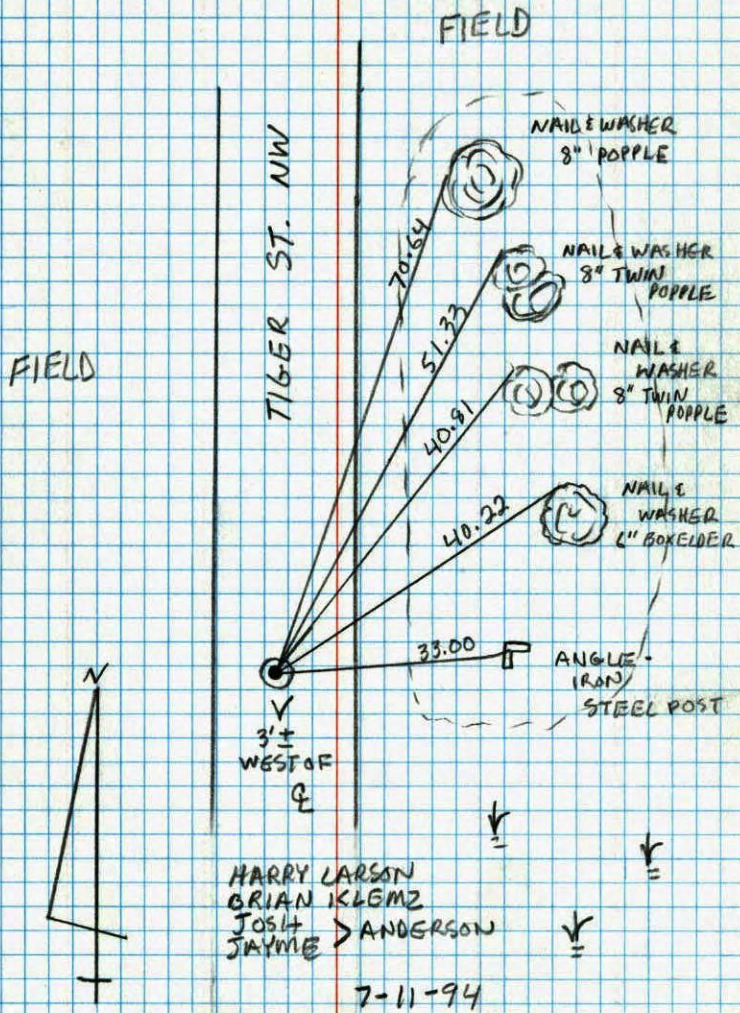 FIELD
NAIL & WASHER
8" POPPLE
TIGER ST. NW
70.64
NAIL & WASHER
8" TWIN
POPPLE
51.33
FIELD
NAIL &
WASHER
8" TWIN
POPPLE
40.81
NAIL &
WASHER
6" BOXELDER
40.22
33.00
ANGLE-
IRON
STEEL POST
N
3'±
WEST OF
℄
HARRY LARSON
BRIAN KLEMZ
JOSH
JAYME > ANDERSON
7-11-94